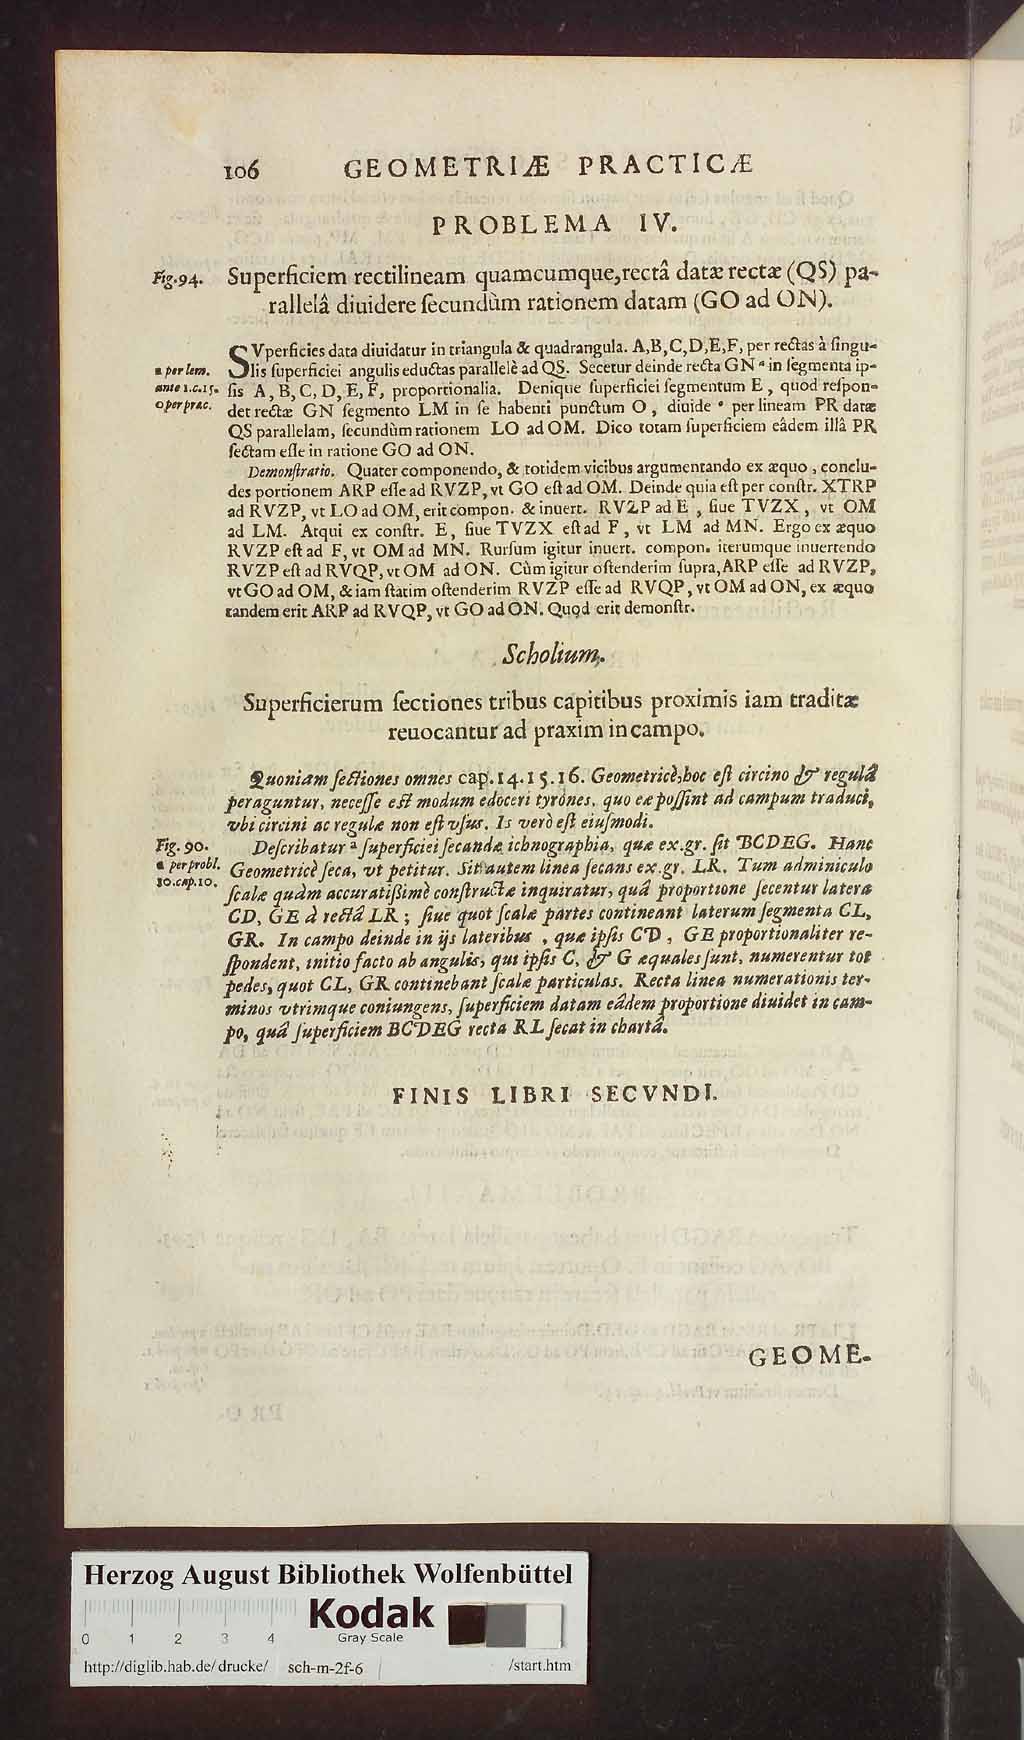 106 GEOMETRIÆ PRACTICÆ
PROBLEMA IV.
Fig. 94. Superficiem rectilineam quamcumque, rectâ datæ rectæ (QS) pa-
rallelâ diuidere ſecundùm rationem datam (GO ad ON).
SVperficies data diuidatur in triangula & quadrangula. A, B, C, D, E, F, per rectas à ſingu-
a per lem. lis ſuperficiei angulis eductas parallelè ad QS. Secetur deinde recta GN a in ſegmenta ip-
ante 1.c.15. ſis A, B, C, D, E, F, proportionalia. Denique ſuperficiei ſegmentum E, quod reſpon-
o per prac. det rectæ GN ſegmento LM in ſe habenti punctum O, diuide o per lineam PR datæ
QS parallelam, ſecundùm rationem LO ad OM. Dico totam ſuperficiem eâdem illâ PR
ſectam eſſe in ratione GO ad ON.
Demonſtratio. Quater componendo, & totidem vicibus argumentando ex æquo, conclu-
des portionem ARP eſſe ad RVZP, vt GO eſt ad OM. Deinde quia eſt per conſtr. XTRP
ad RVZP, vt LO ad OM, erit compon. & inuert. RVZP ad E, ſiue TVZX, vt OM
ad LM. Atqui ex conſtr. E, ſiue TVZX eſt ad F, vt LM ad MN. Ergo ex æquo
RVZP eſt ad F, vt OM ad MN. Rurſum igitur inuert. compon. iterumque inuertendo
RVZP eſt ad RVQP, vt OM ad ON. Cùm igitur oſtenderim ſupra, ARP eſſe ad RVZP,
vt GO ad OM, & iam ſtatim oſtenderim RVZP eſſe ad RVQP, vt OM ad ON, ex æquo
tandem erit ARP ad RVQP, vt GO ad ON. Quod erit demonſtr.
Scholium.
Superficierum ſectiones tribus capitibus proximis iam traditæ
reuocantur ad praxim in campo.
Quoniam ſectiones omnes cap. 14. 15. 16. Geometricè, hoc eſt circino & regulâ
peraguntur, neceſſe eſt modum edoceri tyrones, quo eæ poſſint ad campum traduci,
vbi circini ac regulæ non eſt vſus. Is verò eſt eiuſmodi.
Fig. 90. Deſcribatur a ſuperficiei ſecandæ ichnographia, quæ ex. gr. ſit BCDEG. Hanc
a per probl. Geometricè ſeca, vt petitur. Sit autem linea ſecans ex. gr. LR. Tum adminiculo
10. cap. 10. ſcalæ quàm accuratißimè conſtructæ inquiratur, quâ proportione ſecentur latera
CD, GE à rectâ LR; ſiue quot ſcalæ partes contineant laterum ſegmenta CL,
GR. In campo deinde in ijs lateribus, quæ ipſis CD, GE proportionaliter re-
ſpondent, initio facto ab angulis, qui ipſis C, & G æquales ſunt, numerentur tot
pedes, quot CL, GR continebant ſcalæ particulas. Recta linea numerationis ter-
minos vtrimque coniungens, ſuperficiem datam eâdem proportione diuidet in cam-
po, quâ ſuperficiem BCDEG recta RL ſecat in chartâ.
FINIS LIBRI SECVNDI.
GEOME-
Herzog August Bibliothek Wolfenbüttel
Kodak
Gray Scale
0 1 2 3 4
http://diglib.hab.de/drucke/ sch-m-2f-6 /start.htm